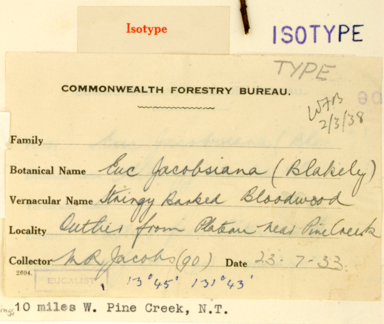 Isotype
ISOTYPE
TYPE
COMMONWEALTH FORESTRY BUREAU.
WFB
2/3/38
Family
Botanical Name Euc Jacobsiana (Blakely)
Vernacular Name Stringy Barked Bloodwood
Locality Outlier from Plateau near Pine Creek
Collector M R Jacobs (90) Date 23-7-33
2694.
EUCALYPT
13°45' 131°43'
10 miles W. Pine Creek, N.T.